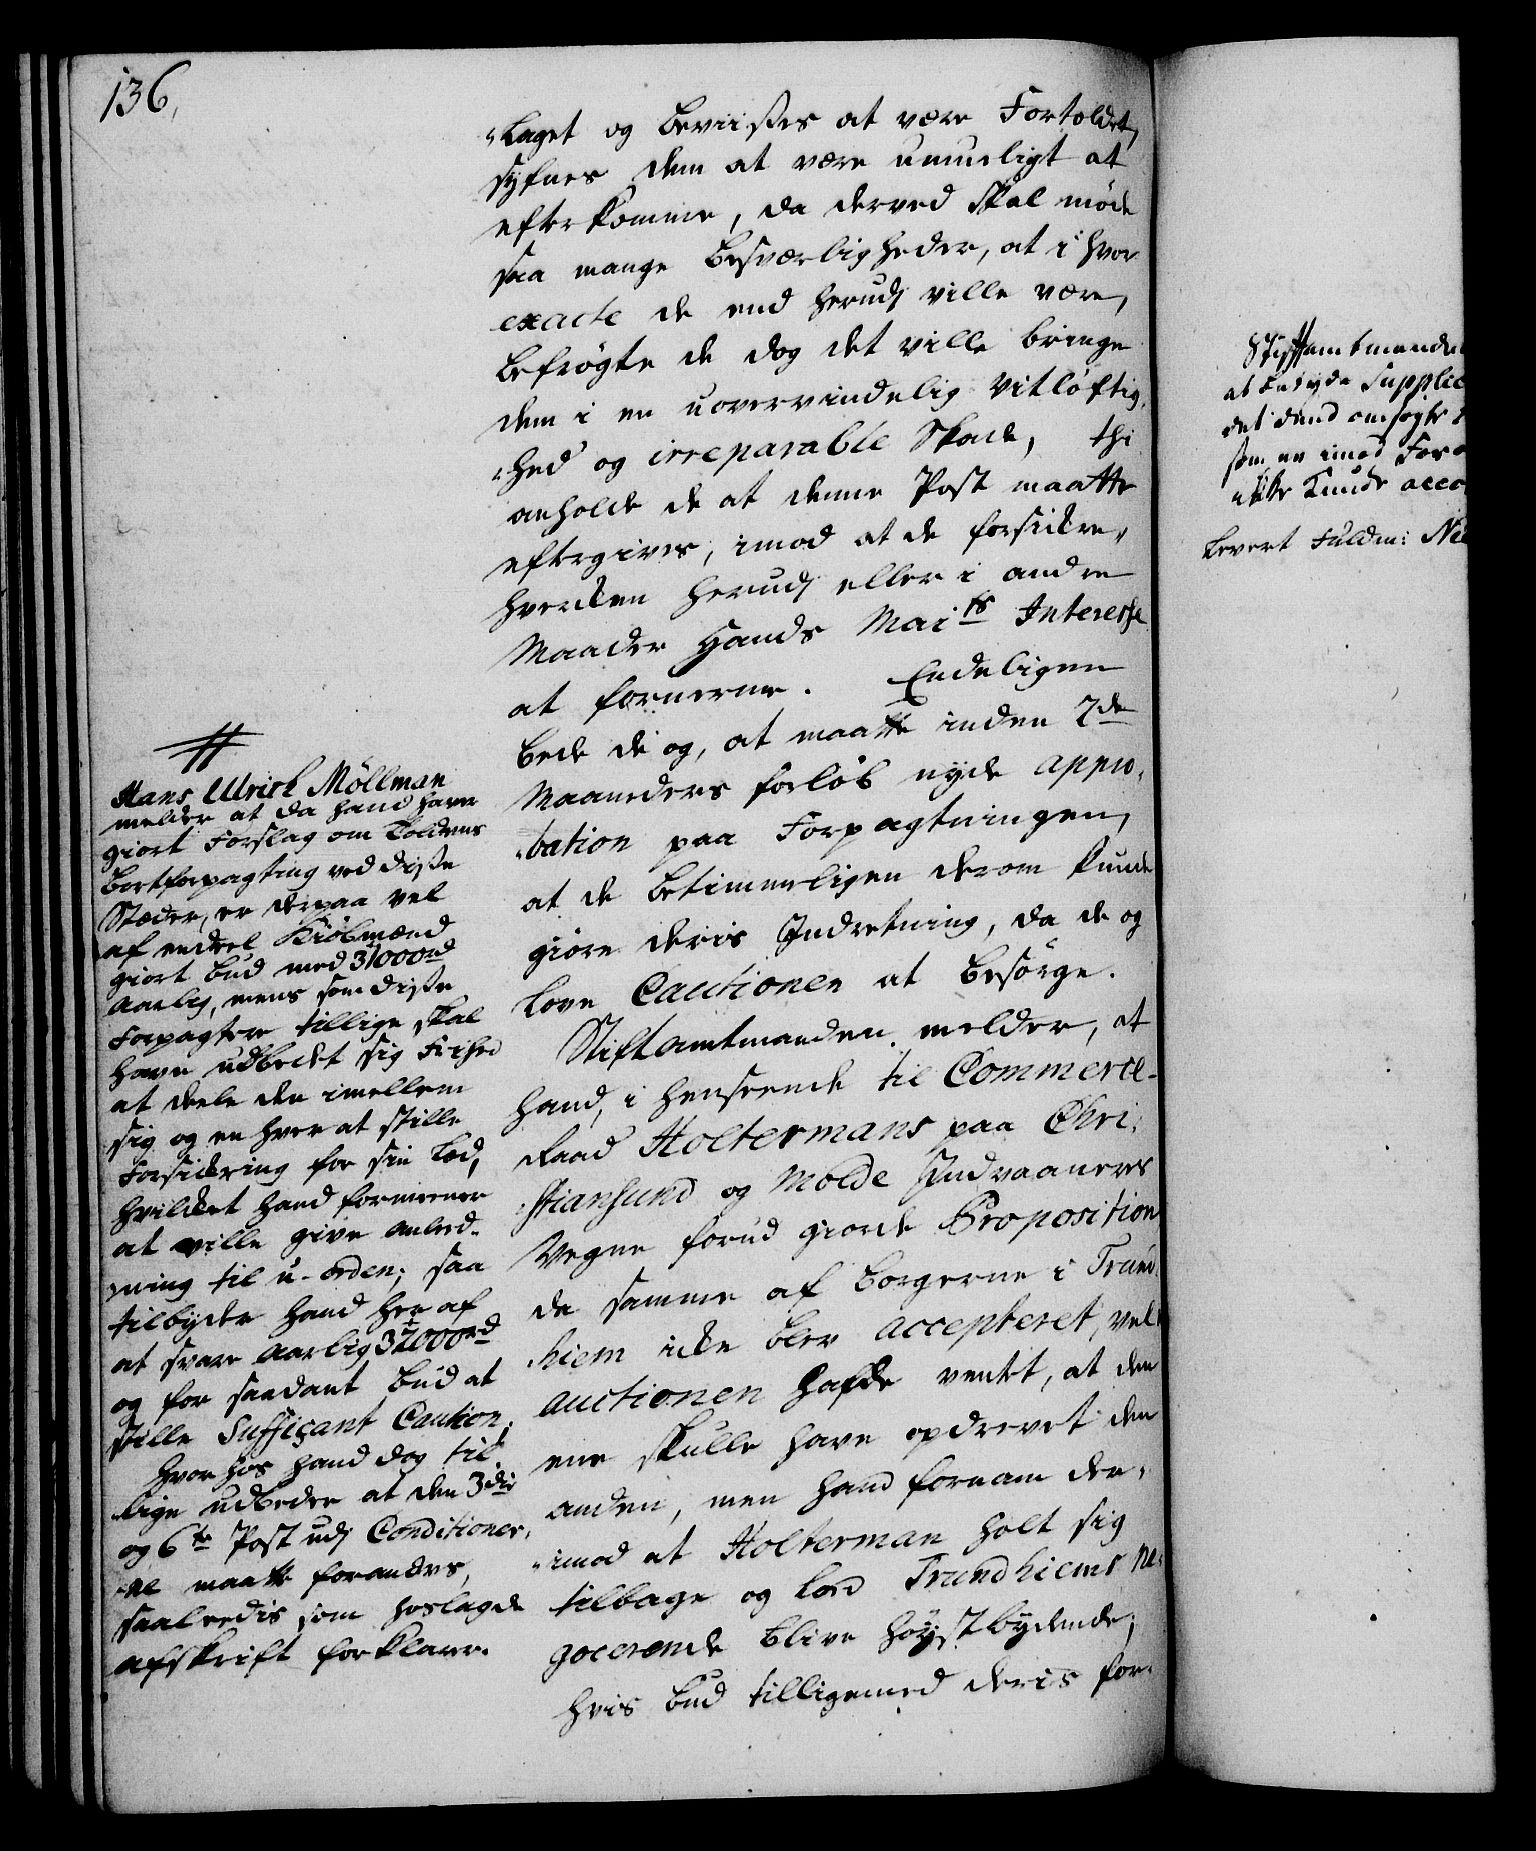 136,
"laget og beviises at være Fortoldet,
synes dem at være umueligt at
efterkomme, da derved skal møde
saa mange besværligheder, at i hvor
exacte de end herudj ville være,
befrøgte de dog det ville bringe
dem i en uovervindelig Vitløftig„
„hed og irreparable Skade, thi
anholde de at denne Post maatte
eftergives, imod at de forsickre„
hvercken herudj eller i andre
Maader Hands Maits Interesse
at fornerme. Endeligen
bede de og, at maatte inden 2de
Maaneders forløb nyde appro„
„bation paa Forpagtningen,
at de betimmeligen derom kunde
giøre deris Indretning, da de og
love Cautionen at besørge.
Stiftamtmanden melder, at
hand, i henseende til Commerce-
Raad Holtermans paa Chri„
„stiansund og Molde Indvaaneres
Vegne forud giorde Proposition
da samme af borgerne i Trund„
„hiem icke blev accepteret, vel
auctionen hafde ventet, at den
ene skulle have opdrevet den
anden, men hand fornam der„
„imod at Holterman holt sig
tilbage og lod Trundhiems ne„
gocerende blive høystbydende,
hvis bud tilligemed deris for„
#
Hans Ulrich Möllman
melder at da hand haver
giort Forslag om Toldens
bortforpagting ved disse
Stæder, er derpaa vel
af endeel Kiøbmænd
giort bud med 31000 rd
aarlig, mens som disse
Forpagtere tillige skal
have udbedet sig Frihed
at deele den imellem
sig og en hver at stille
Forsickring for sin Lod,
hvilcket hand formeener
at ville give anled„
„ning til u-orden; saa
tilbyder hand her af
at svare aarlig 32000 rd
og for saadant bud at
stille Suffiçant Caution,
hvor hos hand dog til„
„lige udbeder at den 3die
og 6te Post udj Conditioner„
„ne maatte forandres,
saaledis som hoslagde
afskrift forklarer.
Stiftamtmanden
at betyde Supplic
det dend ansøgte
som en imod Foro
icke kunde acco
Levert Fuldm: Ni